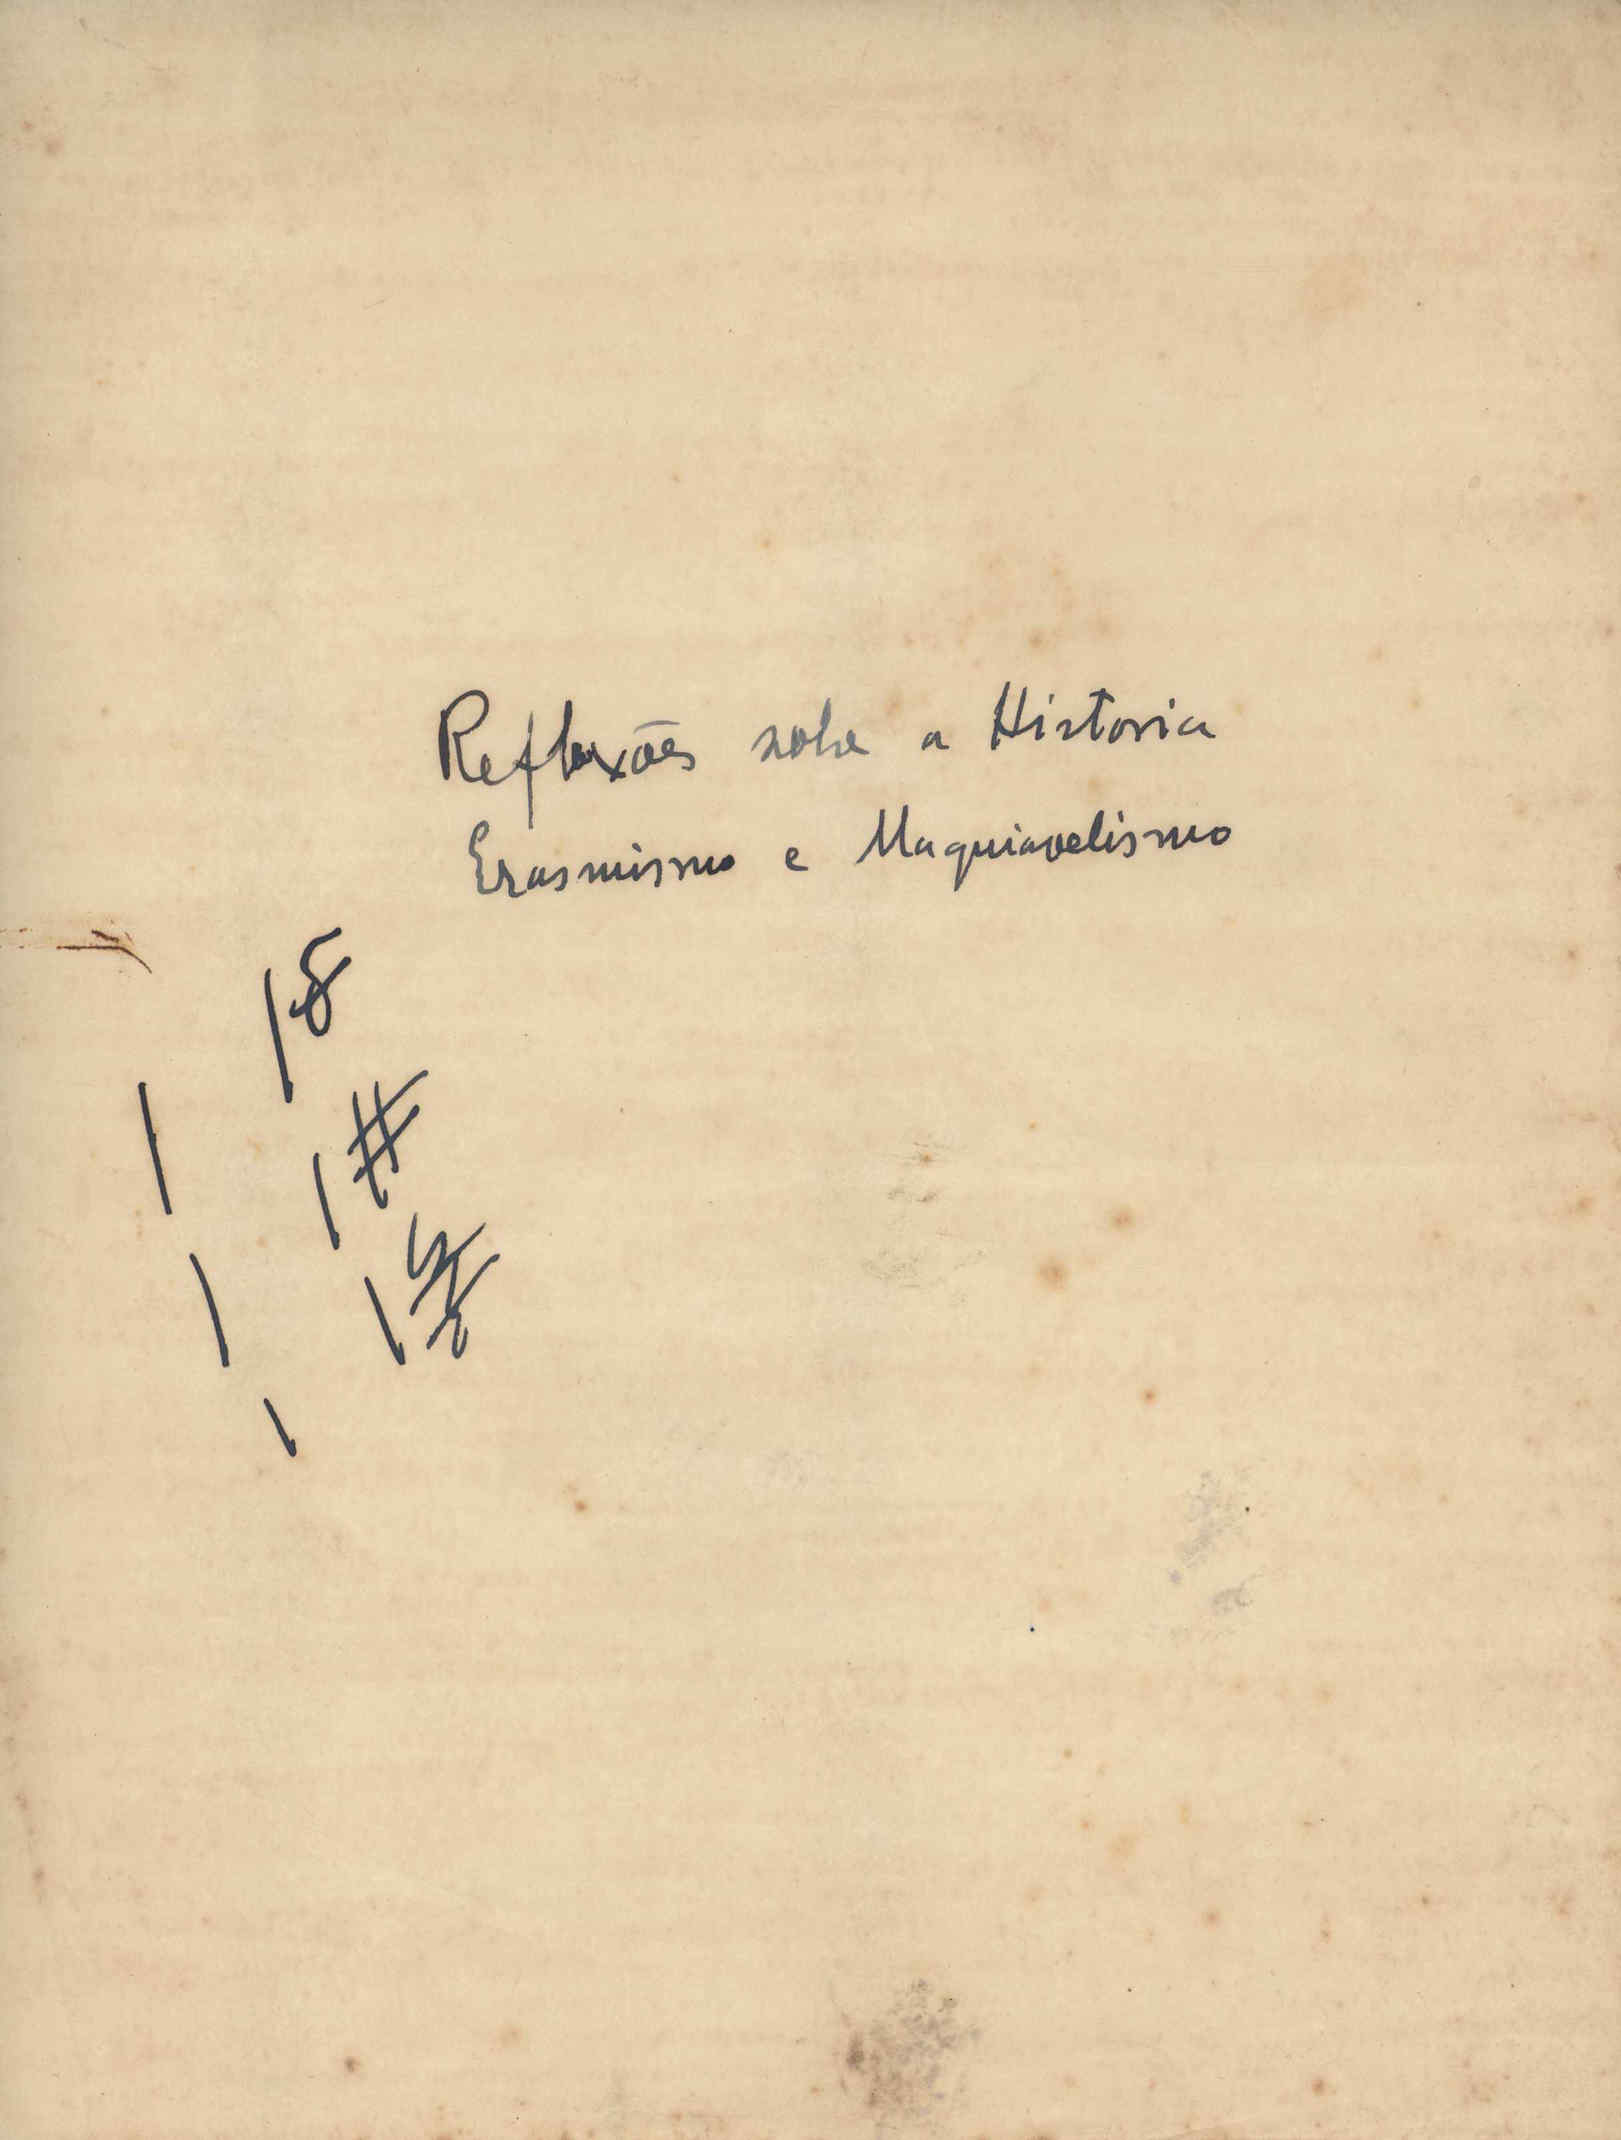 Reflexões sobre a Historia
Erasmismo e Maquiavelismo
18